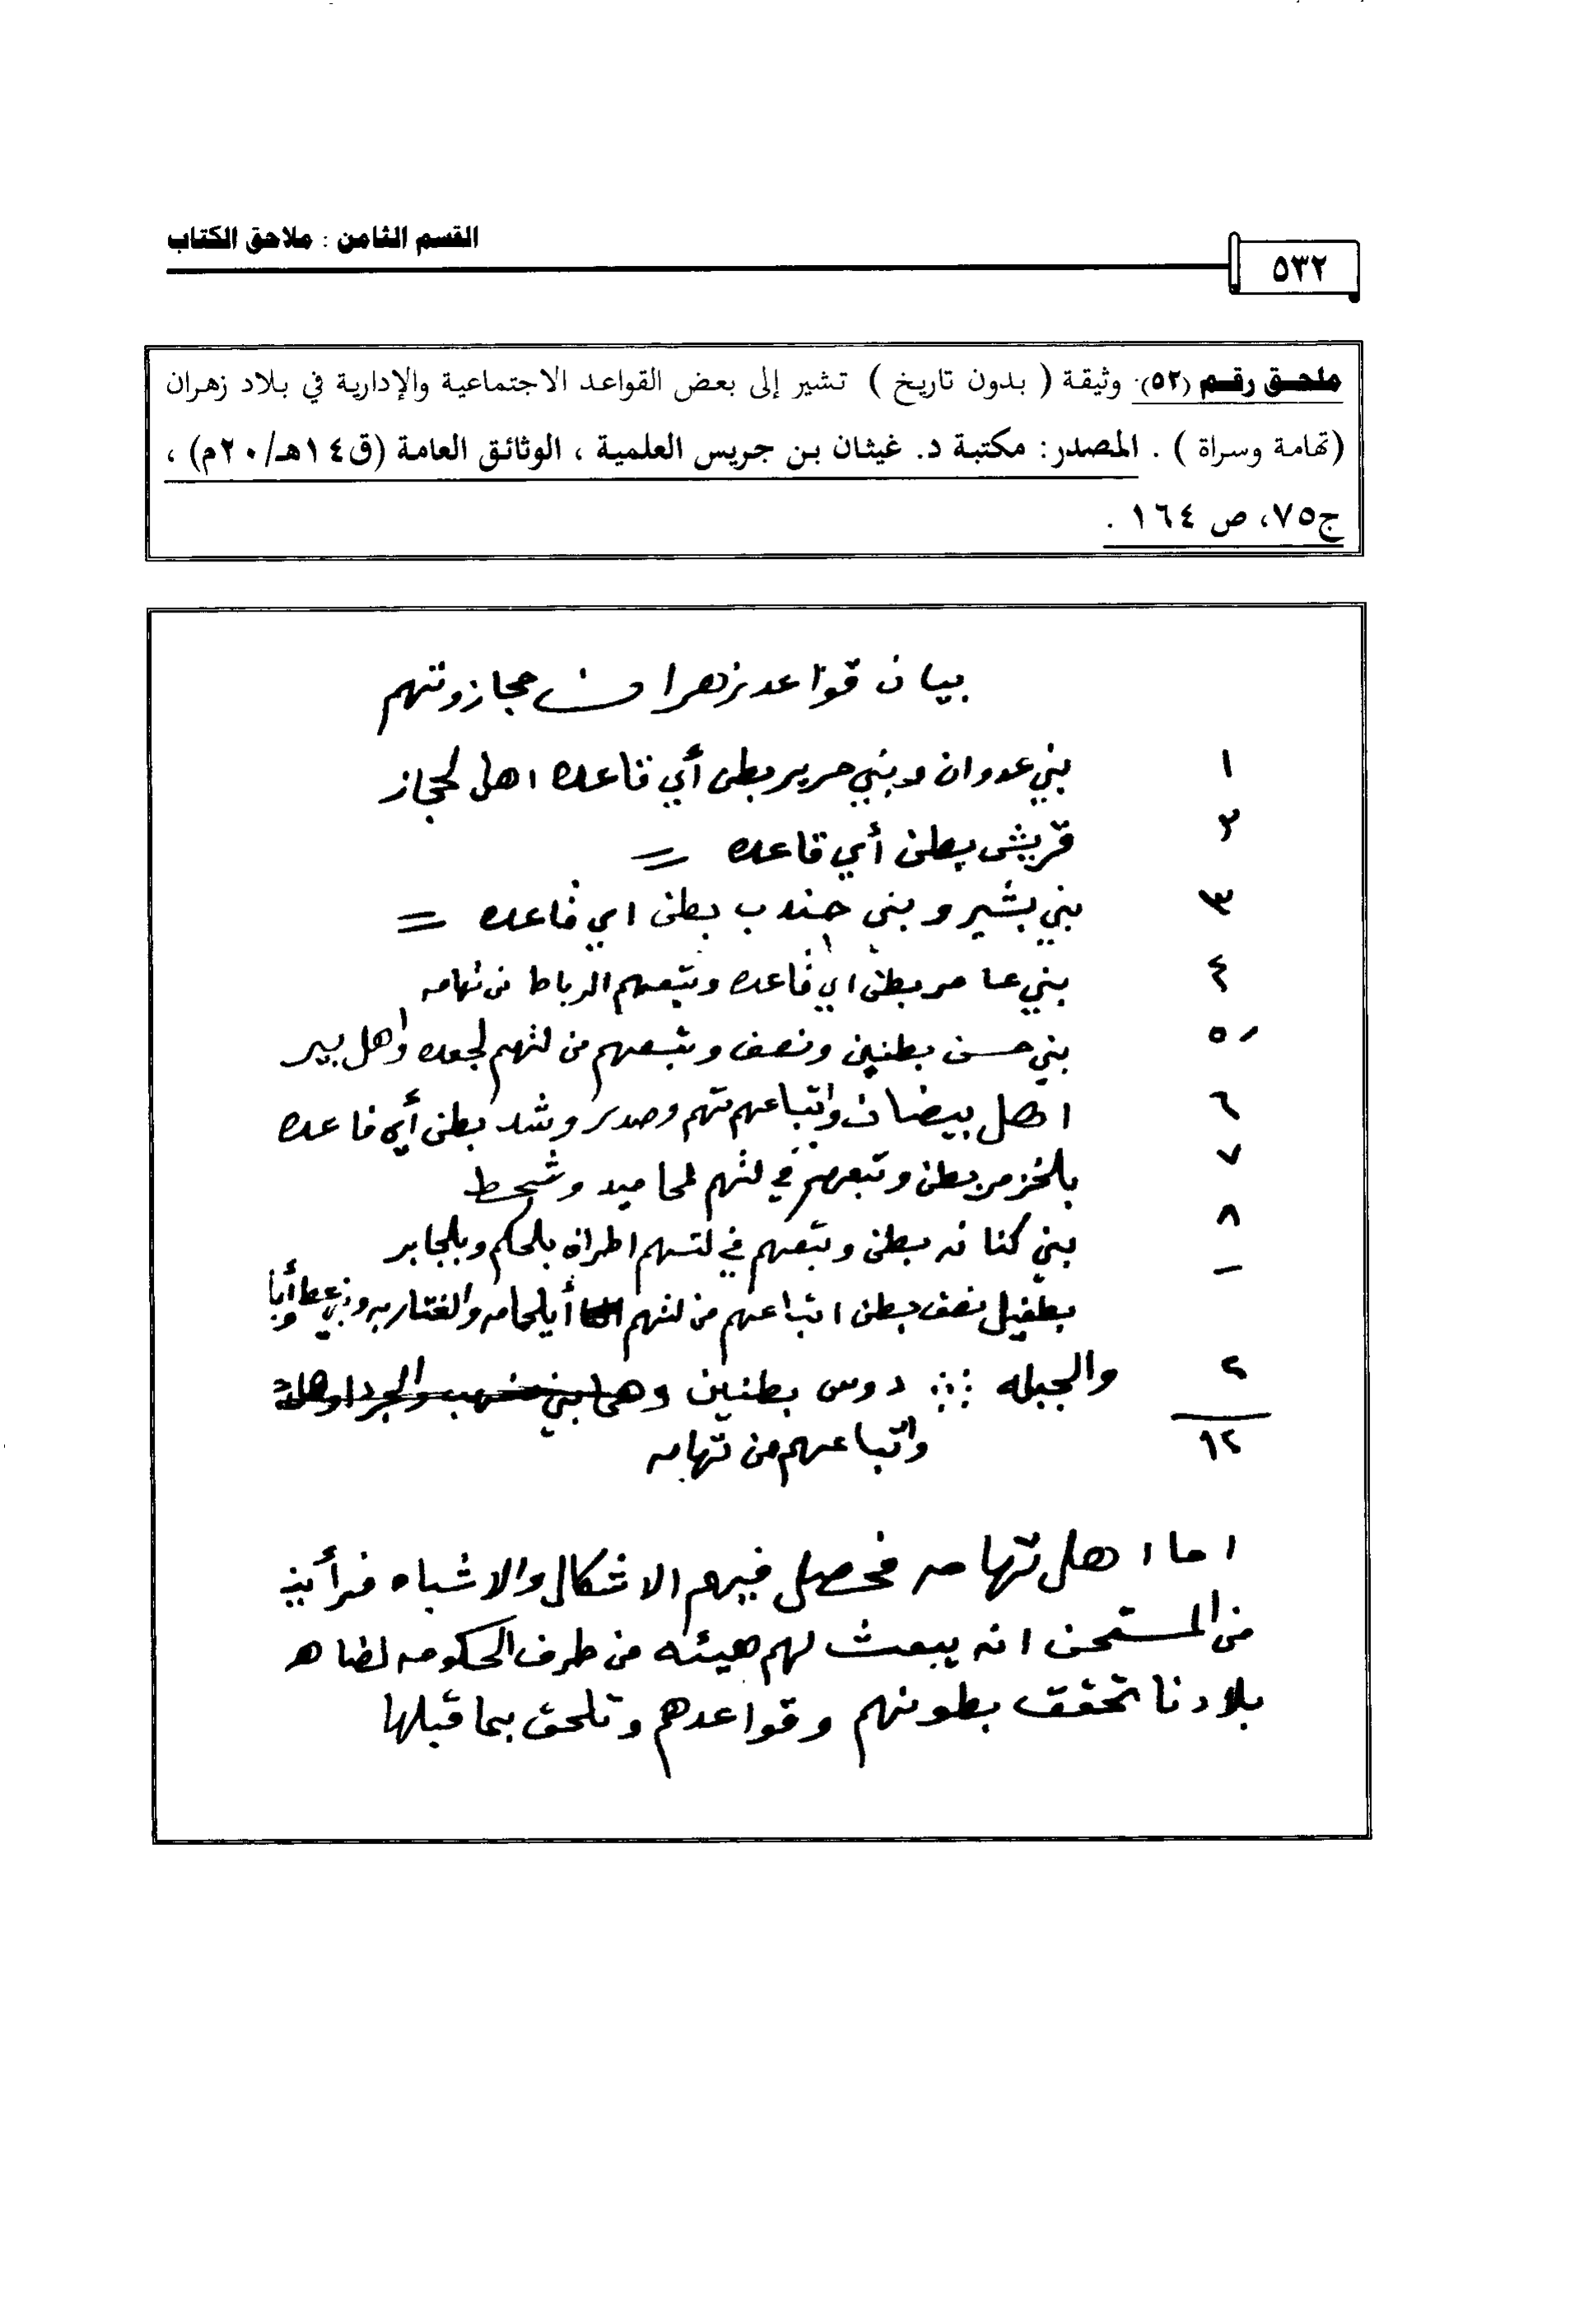 القسم الثامن : ملاحق الكتاب
٥٣٢
ملحق رقم (٥٢): وثيقة ( بدون تاريخ ) تشير إلى بعض القواعد الاجتماعية والإدارية في بلاد زهران
(تهامة وسراة ) . المصدر: مكتبة د. غيثان بن جريس العلمية ، الوثائق العامة (ق١٤هـ/٢٠م) ،
ج٧٥، ص ١٦٤ .
بيان قواعد زهران حجاز وتهم
١ بني عدوان وبني حرير بطن أي قاعده اهل لحجاز
٢ قريش بطن أي قاعده =
٣ بني بشير وبني جندب بطن اي قاعده =
٤ بني عامر بطن اي قاعده وتبعهم الرباط من تهامه
٥ بني حسن بطنين ونصف وتبعهم من لتهم لجعده واهل بير
٦ اهل بيضان واتباعهم تهم وصدر وشد بطن أي قاعده
٧ بلخزمر بطن وتبعهم في لتهم لمحاميد وشحط
٨ بني كنانه بطن وتبعهم في لتهم بلحكم وبلجابر
بطفيل نصف بطن اتباعهم من لتهم
٢ والجبله دوس بطنين
١٢ واتباعهم من تهامه
اما اهل تهامه فحصل فيهم الاشكال والاشباه فرأيت
من المستحسن انه يبعث لهم هيئه من طرف الحكومه
بلادنا تحقق بطونهم وقواعدهم وتلحق بما قبلها